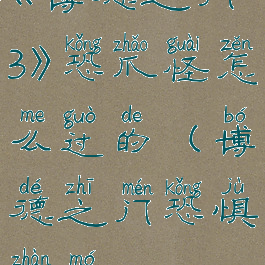 3》恐爪怪怎
kǒng zhǎo guài zěn
么过的(博
me guò de bó
德之门恐惧
dé zhī mén kǒng jù
zhàn mó